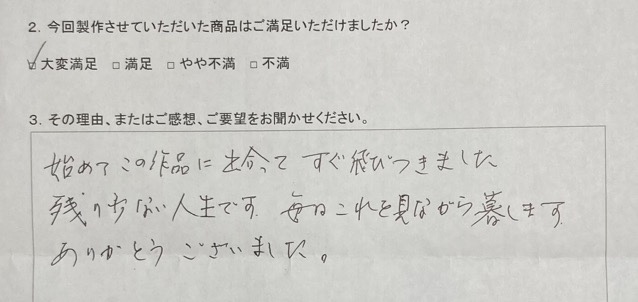 2. 今回製作させていただいた商品はご満足いただけましたか？
☑大変満足 □満足 □やや不満 □不満
3. その理由、またはご感想、ご要望をお聞かせください。
始めてこの作品に出合って すぐ飛びつきました
残り少ない人生です 毎日これを見ながら暮します
ありがとうございました。